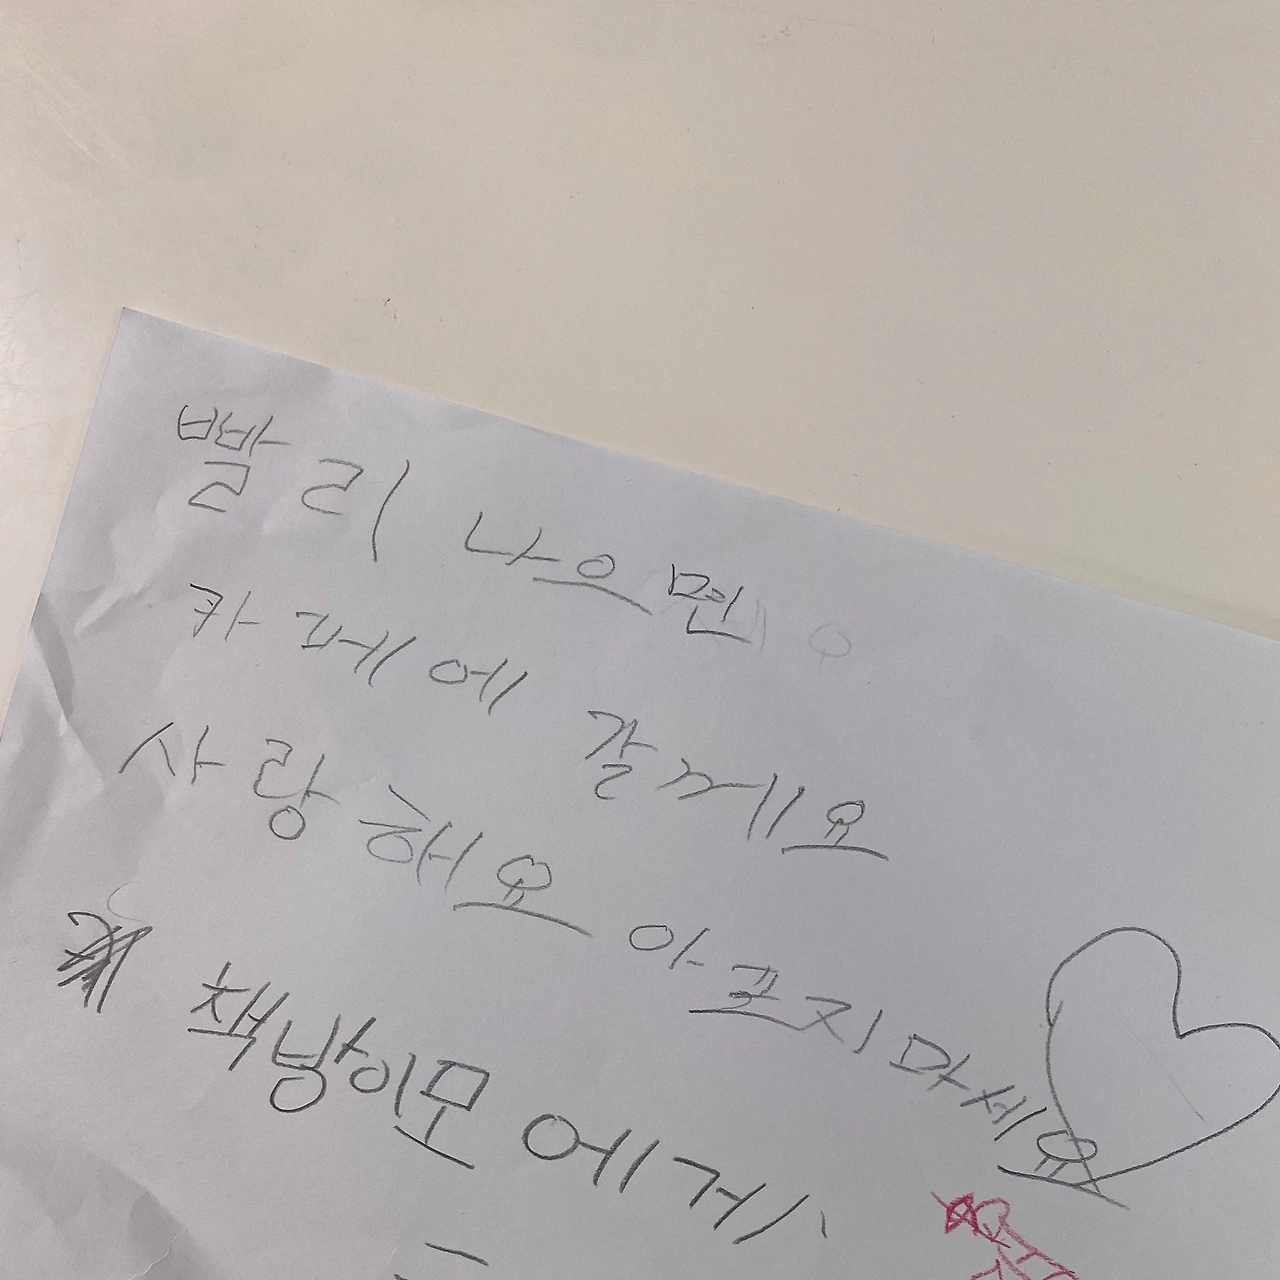 빨리 나으면
카페에 갈께요
사랑해요 아프지마세요
책방이모에게